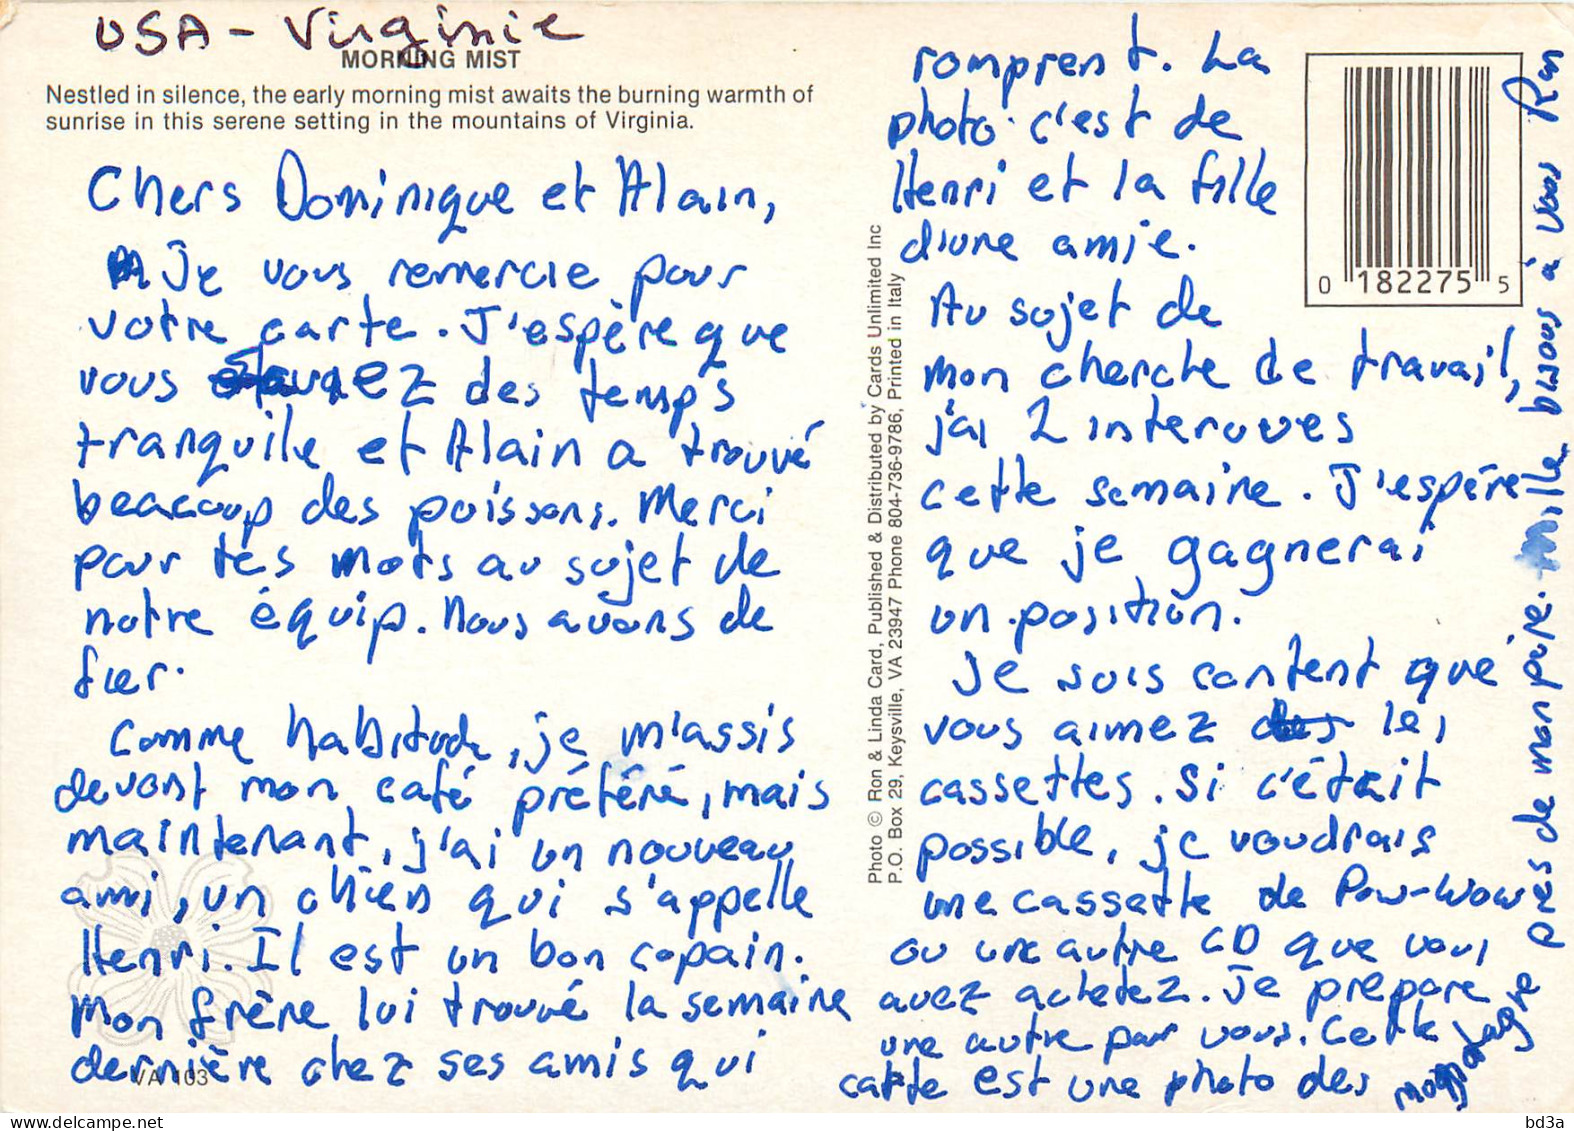 USA - Virginie
MORNING MIST
Nestled in silence, the early morning mist awaits the burning warmth of
sunrise in this serene setting in the mountains of Virginia.
Chers Dominique et Alain,
Je vous remercie pour
votre carte. J'espère que
vous des temps
tranquile et Alain a trouvé
beacoup des poissons. Merci
pour tes mots au sujet de
notre équip. Nous avons de
fier.
Comme habitude, je m'assis
devant mon café préféré, mais
maintenant, j'ai un nouveau
ami, un chien qui s'appelle
Henri. Il est un bon copain.
Mon frère lui trouvé la semaine
dernière chez ses amis qui
VA 103
romprent. La
photo c'est de
Henri et la fille
d'une amie.
Au sujet de
mon cherche de travail,
j'ai 2 interuves
cette semaine. J'espère
que je gagnerai
un position.
Je suis content que
vous aimez les
cassettes. Si c'était
possible, je voudrais
une cassette de Pow-wow
ou une autre CD que vous
avez achetez. Je prepare
une autre pour vous. Cette
carte est une photo des
près de mon père. Mille bisous à vous Ron
Photo © Ron & Linda Card, Published & Distributed by Cards Unlimited Inc
P.O. Box 29, Keysville, VA 23947 Phone 804-736-9786, Printed in Italy
0 182275 5
delcampe.net
bd3a